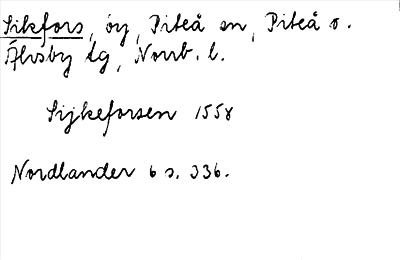 Sikfors, öy, Piteå sn, Piteå o.
Älvsby tg, Norrb. l.
Sijkeforsen 1558
Nordlander 6 s. 336.